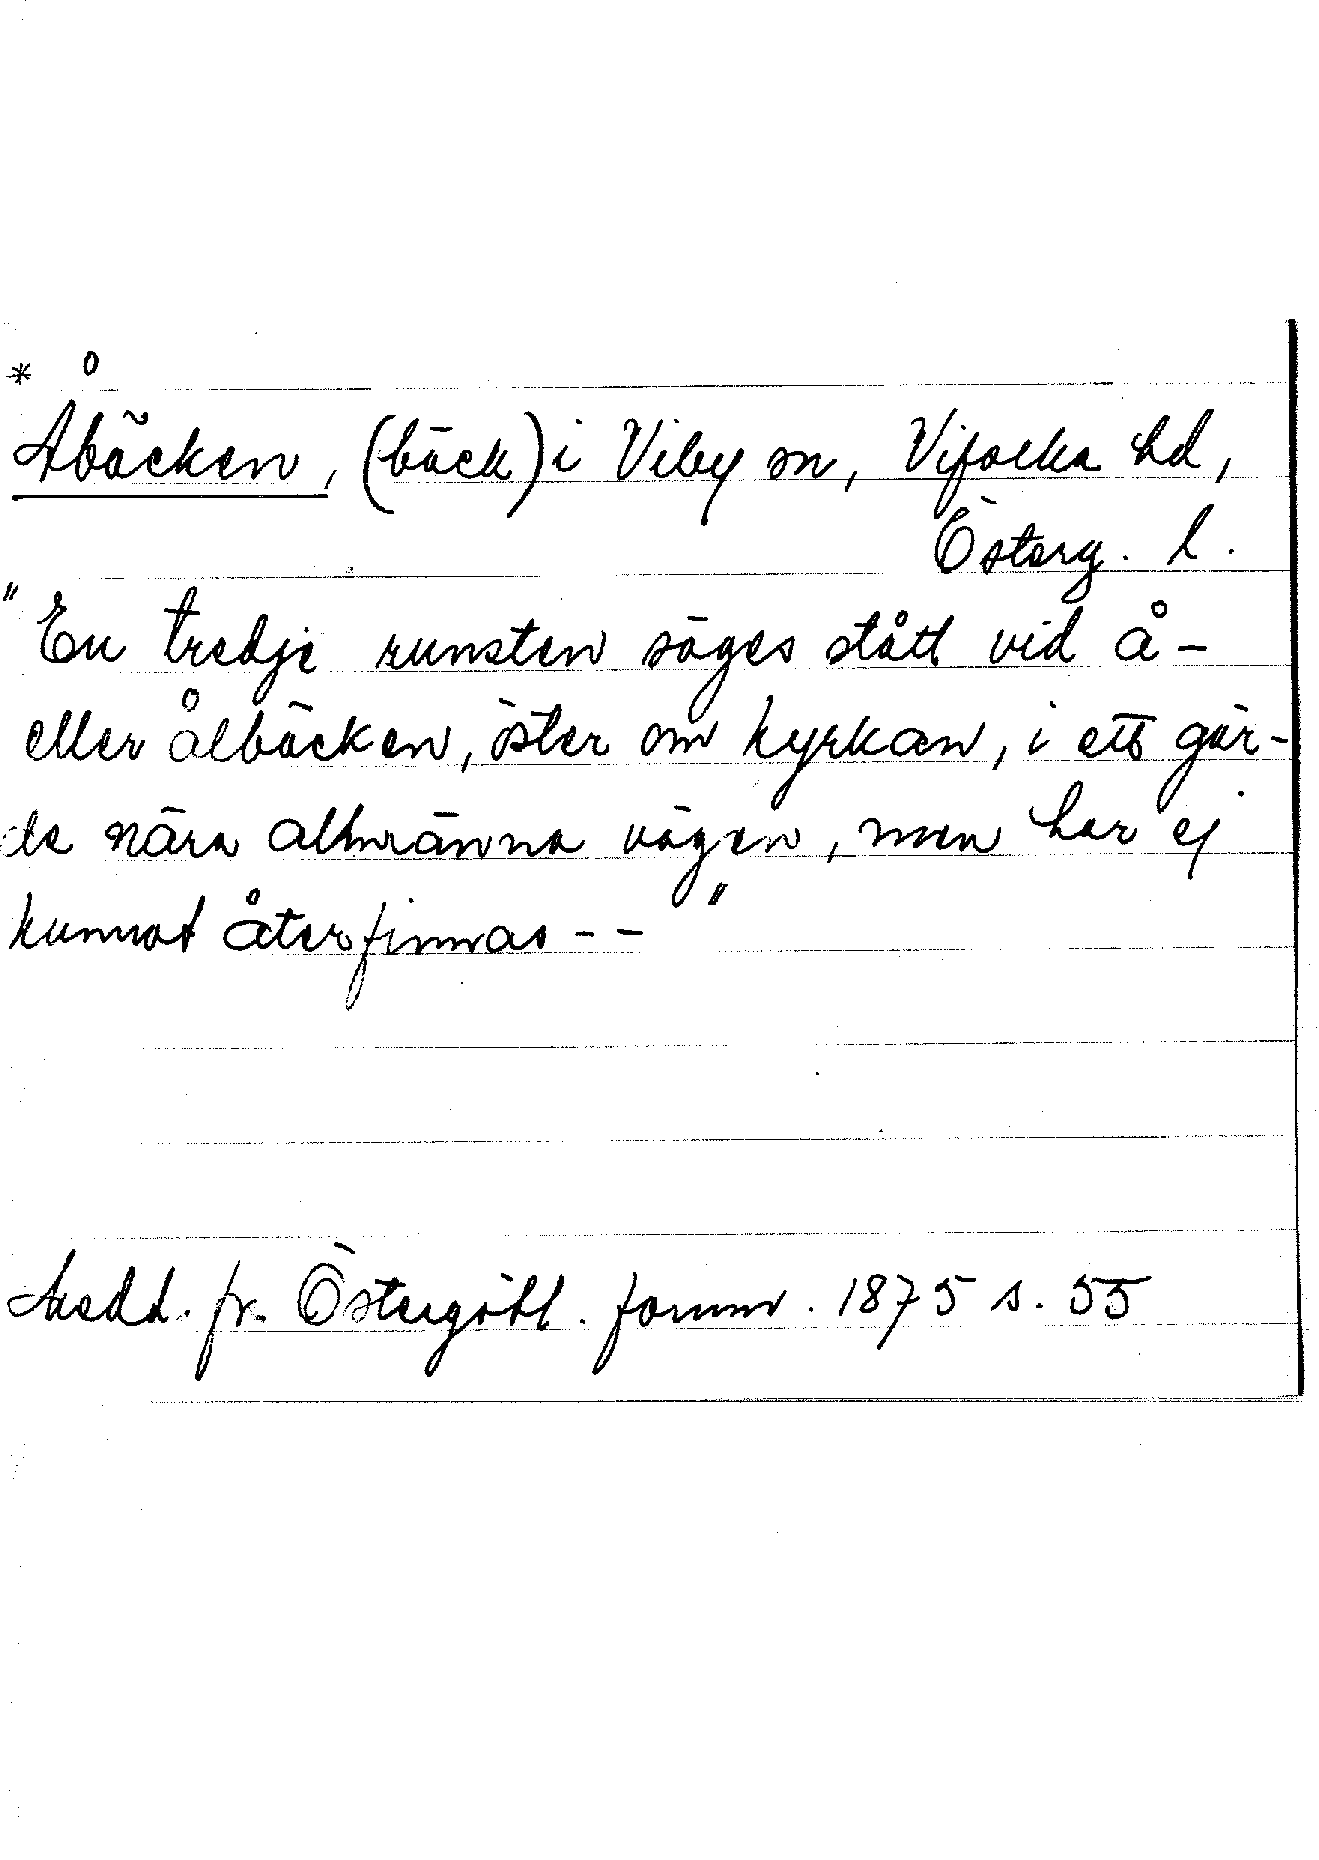 * Åbäcken, (bäck) i Viby sn, Vifolka hd,
Österg. l.
"En tredje runsten säges stått vid å-
eller ålbäcken, öster om kyrkan, i ett gär-
de nära allmänna vägen, men har ej
kunnat återfinnas - - "
Medd. fr. Östergötl. fornm. 1875 s. 55